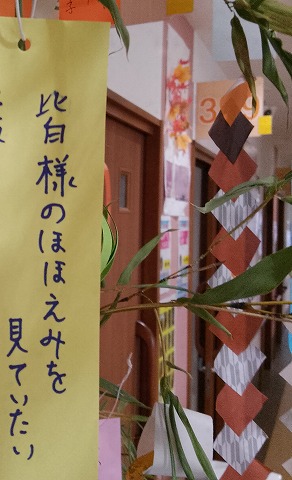 皆様のほほえみを
見ていたい